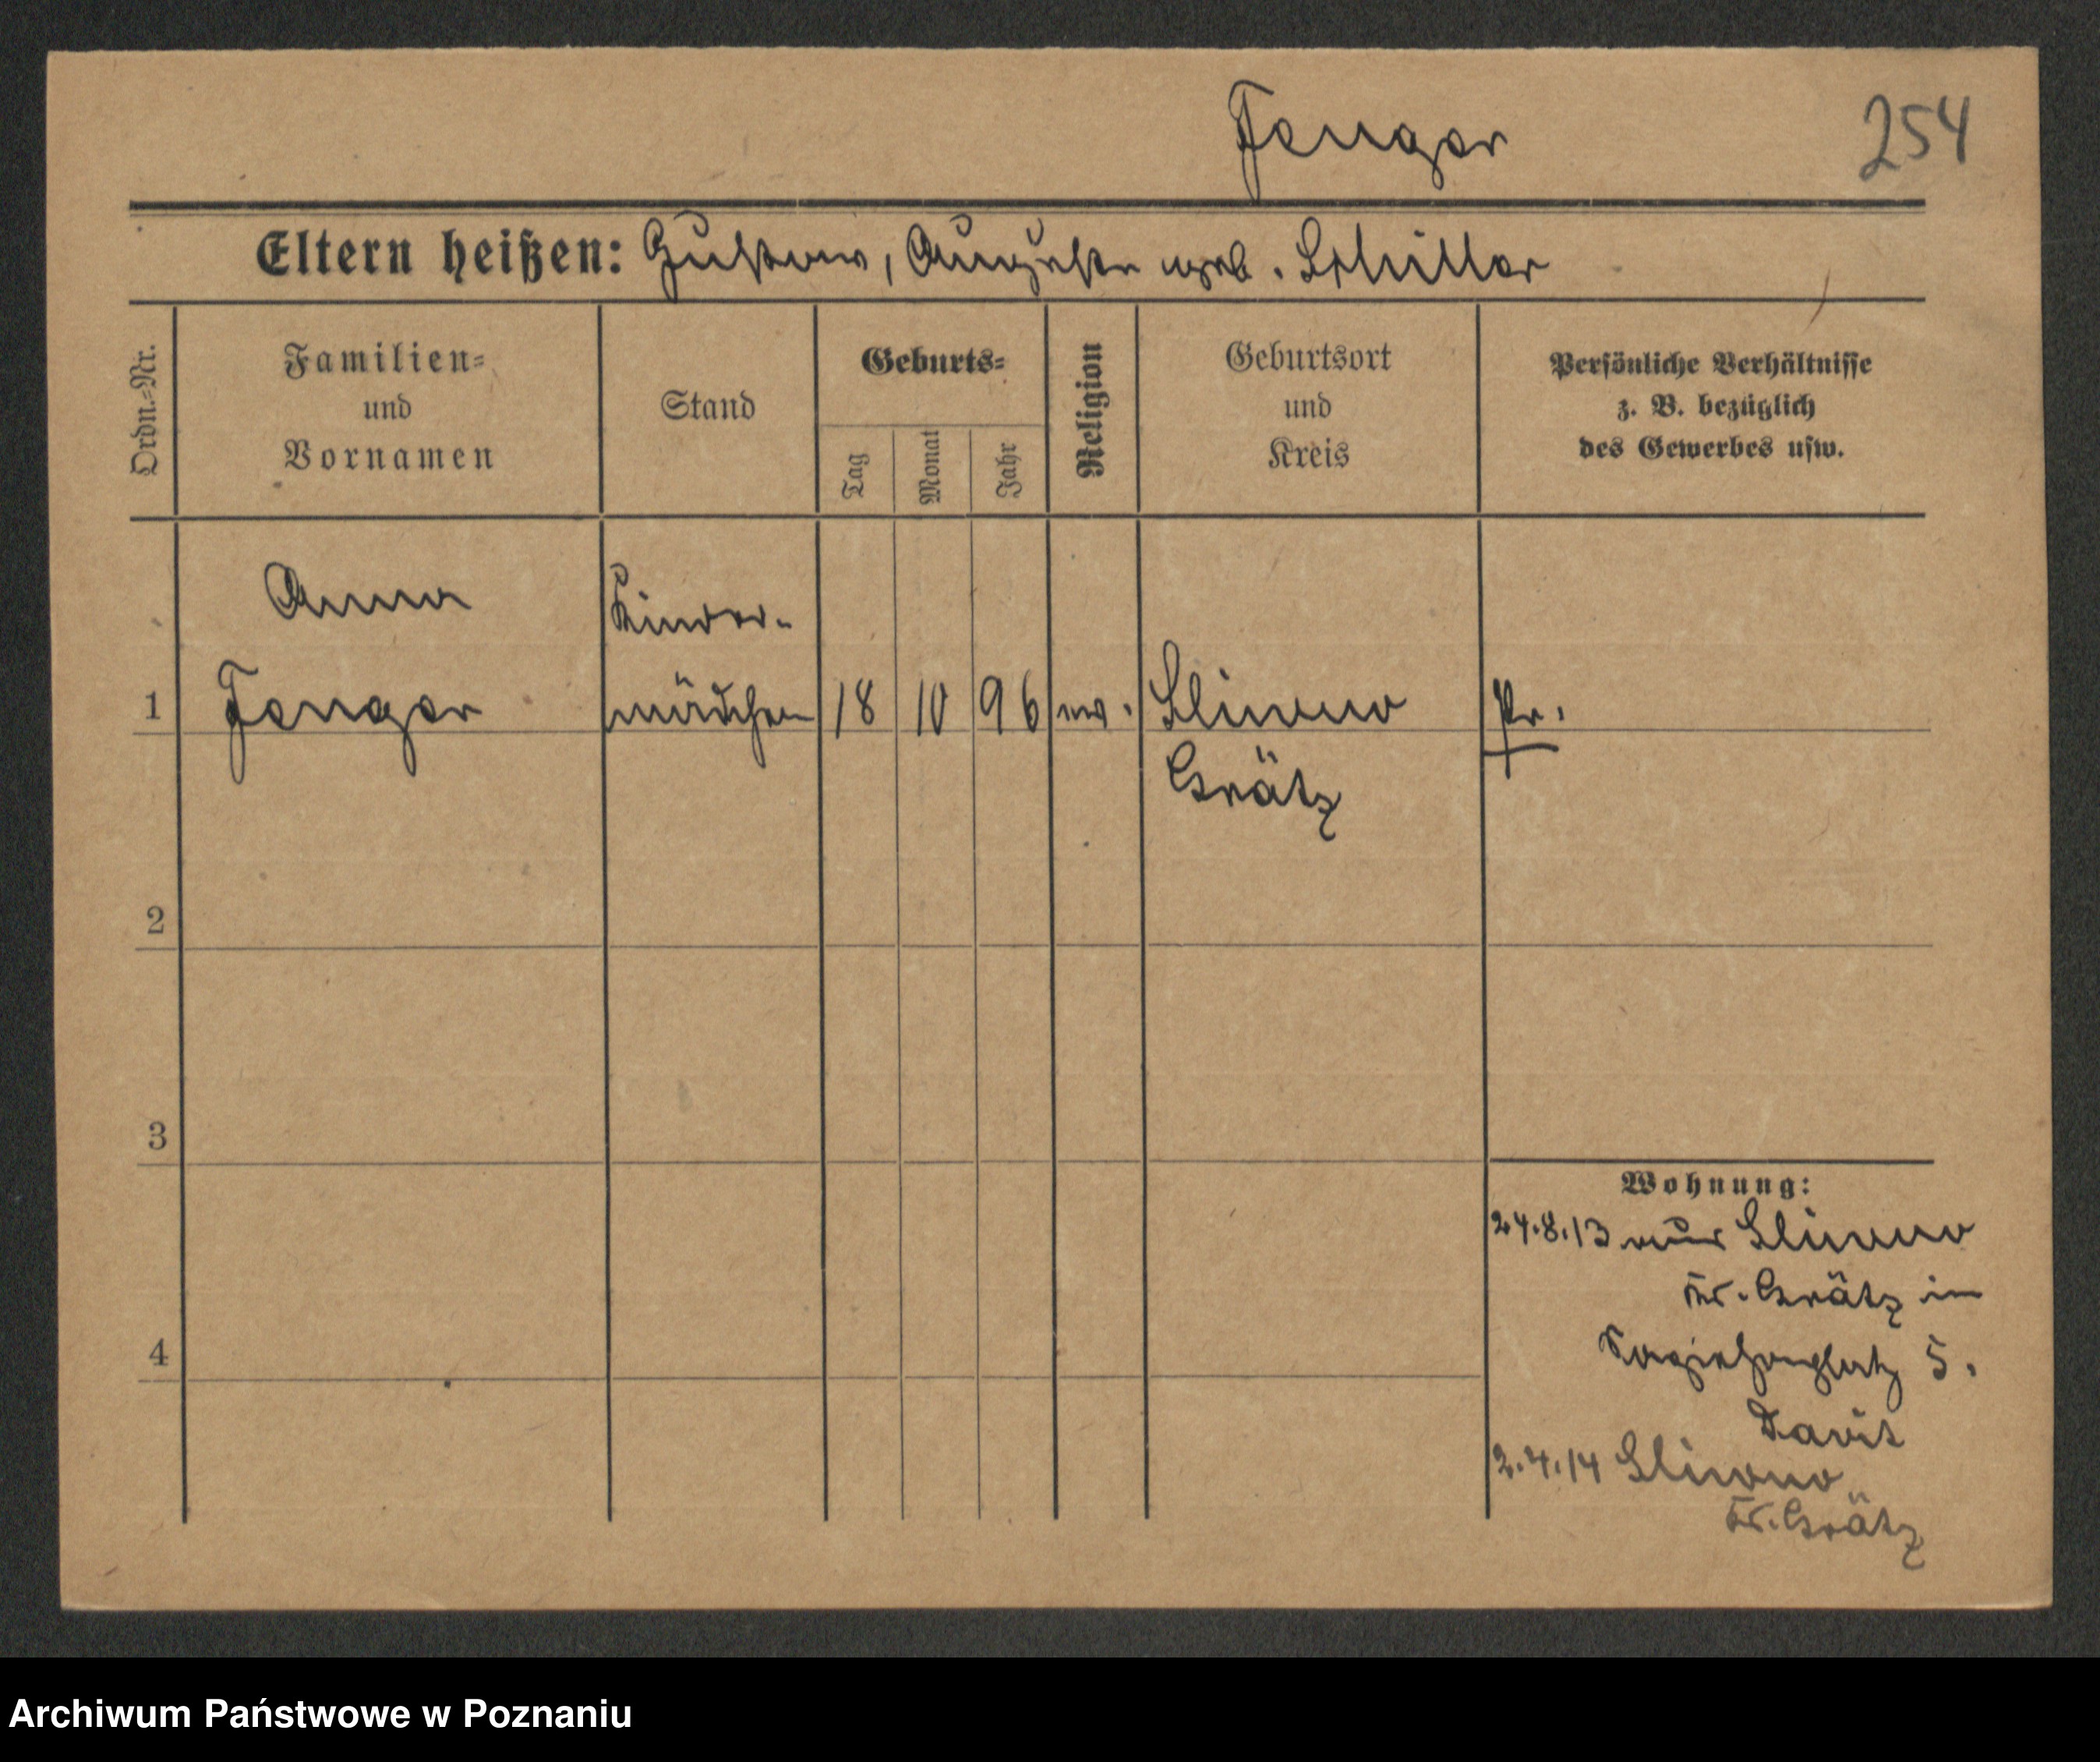 Fenger
254
Eltern heißen: Gustav, Auguste geb. Schiller
Ordn.-Nr.
Familien-
und
Vornamen
Stand
Geburts-
Tag
Monat
Jahr
Religion
Geburtsort
und
Kreis
Persönliche Verhältnisse
z. B. bezüglich
des Gewerbes usw.
Anna
Kinder-
1 Fenger mädchen 18 10 96 ev. Slivno Pr.
Grätz
2
3
Wohnung:
24.8.13 aus Slivno
Kr. Grätz in
4
5.
David
2.4.14 Slivno
Kr. Grätz
Archiwum Państwowe w Poznaniu